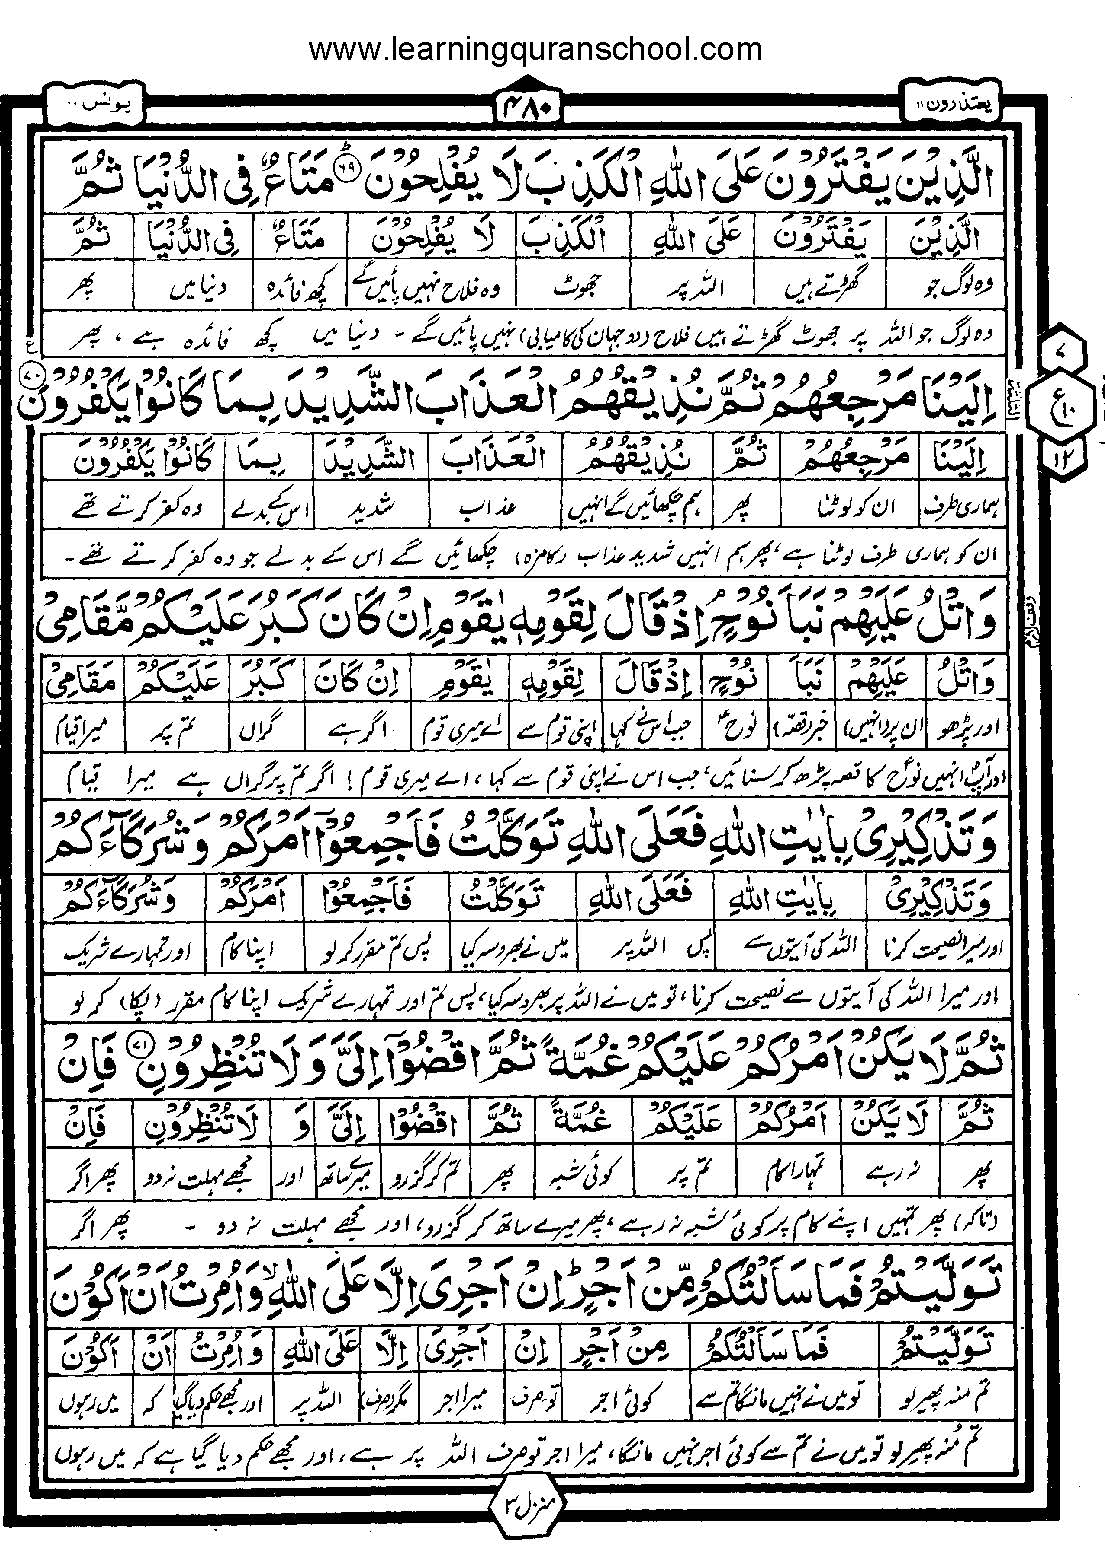 www.learningquranschool.com
یعتذرون ۱۱
۴۸۰
یونس ۱۰
الَّذِيْنَ يَفْتَرُوْنَ عَلَى اللّٰهِ الْكَذِبَ لَا يُفْلِحُوْنَ ۶۹ مَتَاعٌ فِى الدُّنْيَا ثُمَّ
الَّذِيْنَ يَفْتَرُوْنَ عَلَى اللّٰهِ الْكَذِبَ لَا يُفْلِحُوْنَ مَتَاعٌ فِى الدُّنْيَا ثُمَّ
وہ لوگ جو گھڑتے ہیں اللہ پر جھوٹ وہ فلاح نہیں پائیں گے کچھ فائدہ دنیا میں پھر
وہ لوگ جو اللہ پر جھوٹ گھڑتے ہیں فلاح (دو جہان کی کامیابی) نہیں پائیں گے ۔ دنیا میں کچھ فائدہ ہے ، پھر
۷
ع ۱۰
۱۲
اِلَيْنَا مَرْجِعُهُمْ ثُمَّ نُذِيْقُهُمُ الْعَذَابَ الشَّدِيْدَ بِمَا كَانُوْا يَكْفُرُوْنَ ۷۰
اِلَيْنَا مَرْجِعُهُمْ ثُمَّ نُذِيْقُهُمُ الْعَذَابَ الشَّدِيْدَ بِمَا كَانُوْا يَكْفُرُوْنَ
ہماری طرف ان کو لوٹنا پھر ہم چکھائیں گے انہیں عذاب شدید اس کے بدلے وہ کفر کرتے تھے
ان کو ہماری طرف لوٹنا ہے ، پھر ہم انہیں شدید عذاب (کا مزہ) چکھائیں گے اس کے بدلے جو وہ کفر کرتے تھے ۔
وَاتْلُ عَلَيْهِمْ نَبَاَ نُوْحٍ اِذْ قَالَ لِقَوْمِهٖ يٰقَوْمِ اِنْ كَانَ كَبُرَ عَلَيْكُمْ مَّقَامِىْ
وَاتْلُ عَلَيْهِمْ نَبَاَ نُوْحٍ اِذْ قَالَ لِقَوْمِهٖ يٰقَوْمِ اِنْ كَانَ كَبُرَ عَلَيْكُمْ مَقَامِىْ
اور پڑھو ان پر (انہیں) خبر (قصہ) نوحؑ جب اس نے کہا اپنی قوم سے اے میری قوم اگر ہے گراں تم پر میرا قیام
اور آپ انہیں نوحؑ کا قصہ پڑھ کر سنائیں ، جب اس نے اپنی قوم سے کہا ، اے میری قوم ! اگر تم پر گراں ہے میرا قیام
وَتَذْكِيْرِىْ بِاٰيٰتِ اللّٰهِ فَعَلَى اللّٰهِ تَوَكَّلْتُ فَاَجْمِعُوْٓا اَمْرَكُمْ وَشُرَكَآءَكُمْ
وَتَذْكِيْرِىْ بِاٰيٰتِ اللّٰهِ فَعَلَى اللّٰهِ تَوَكَّلْتُ فَاَجْمِعُوْٓا اَمْرَكُمْ وَشُرَكَآءَكُمْ
اور میرا نصیحت کرنا اللہ کی آیتوں سے پس اللہ پر میں نے بھروسہ کیا پس تم مقرر کر لو اپنا کام اور تمہارے شریک
اور میرا اللہ کی آیتوں سے نصیحت کرنا ، تو میں نے اللہ پر بھروسہ کیا ، پس تم اور تمہارے شریک اپنا کام مقرر (پکا) کر لو
ثُمَّ لَا يَكُنْ اَمْرُكُمْ عَلَيْكُمْ غُمَّةً ثُمَّ اقْضُوْٓا اِلَىَّ وَلَا تُنْظِرُوْنِ ۷۱ فَاِنْ
ثُمَّ لَا يَكُنْ اَمْرُكُمْ عَلَيْكُمْ غُمَّةً ثُمَّ اقْضُوْٓا اِلَىَّ وَ لَا تُنْظِرُوْنِ فَاِنْ
پھر نہ رہے تمہارا کام تم پر کوئی شبہ پھر تم کر گزرو میرے ساتھ اور مجھے مہلت نہ دو پھر اگر
(تاکہ) پھر تمہیں اپنے کام پر کوئی شبہ نہ رہے ، پھر میرے ساتھ کر گزرو ، اور مجھے مہلت نہ دو ۔ پھر اگر
تَوَلَّيْتُمْ فَمَا سَاَلْتُكُمْ مِّنْ اَجْرٍ اِنْ اَجْرِىَ اِلَّا عَلَى اللّٰهِ وَاُمِرْتُ اَنْ اَكُوْنَ
تَوَلَّيْتُمْ فَمَا سَاَلْتُكُمْ مِنْ اَجْرٍ اِنْ اَجْرِىَ اِلَّا عَلَى اللّٰهِ وَاُمِرْتُ اَنْ اَكُوْنَ
تم منہ پھیر لو تو میں نے نہیں مانگا تم سے کوئی اجر تو صرف میرا اجر مگر (صرف) اللہ پر اور مجھے حکم دیا گیا کہ میں رہوں
تم منہ پھیر لو تو میں نے تم سے کوئی اجر نہیں مانگا ، میرا اجر تو صرف اللہ پر ہے ، اور مجھے حکم دیا گیا ہے کہ میں رہوں
منزل ۳